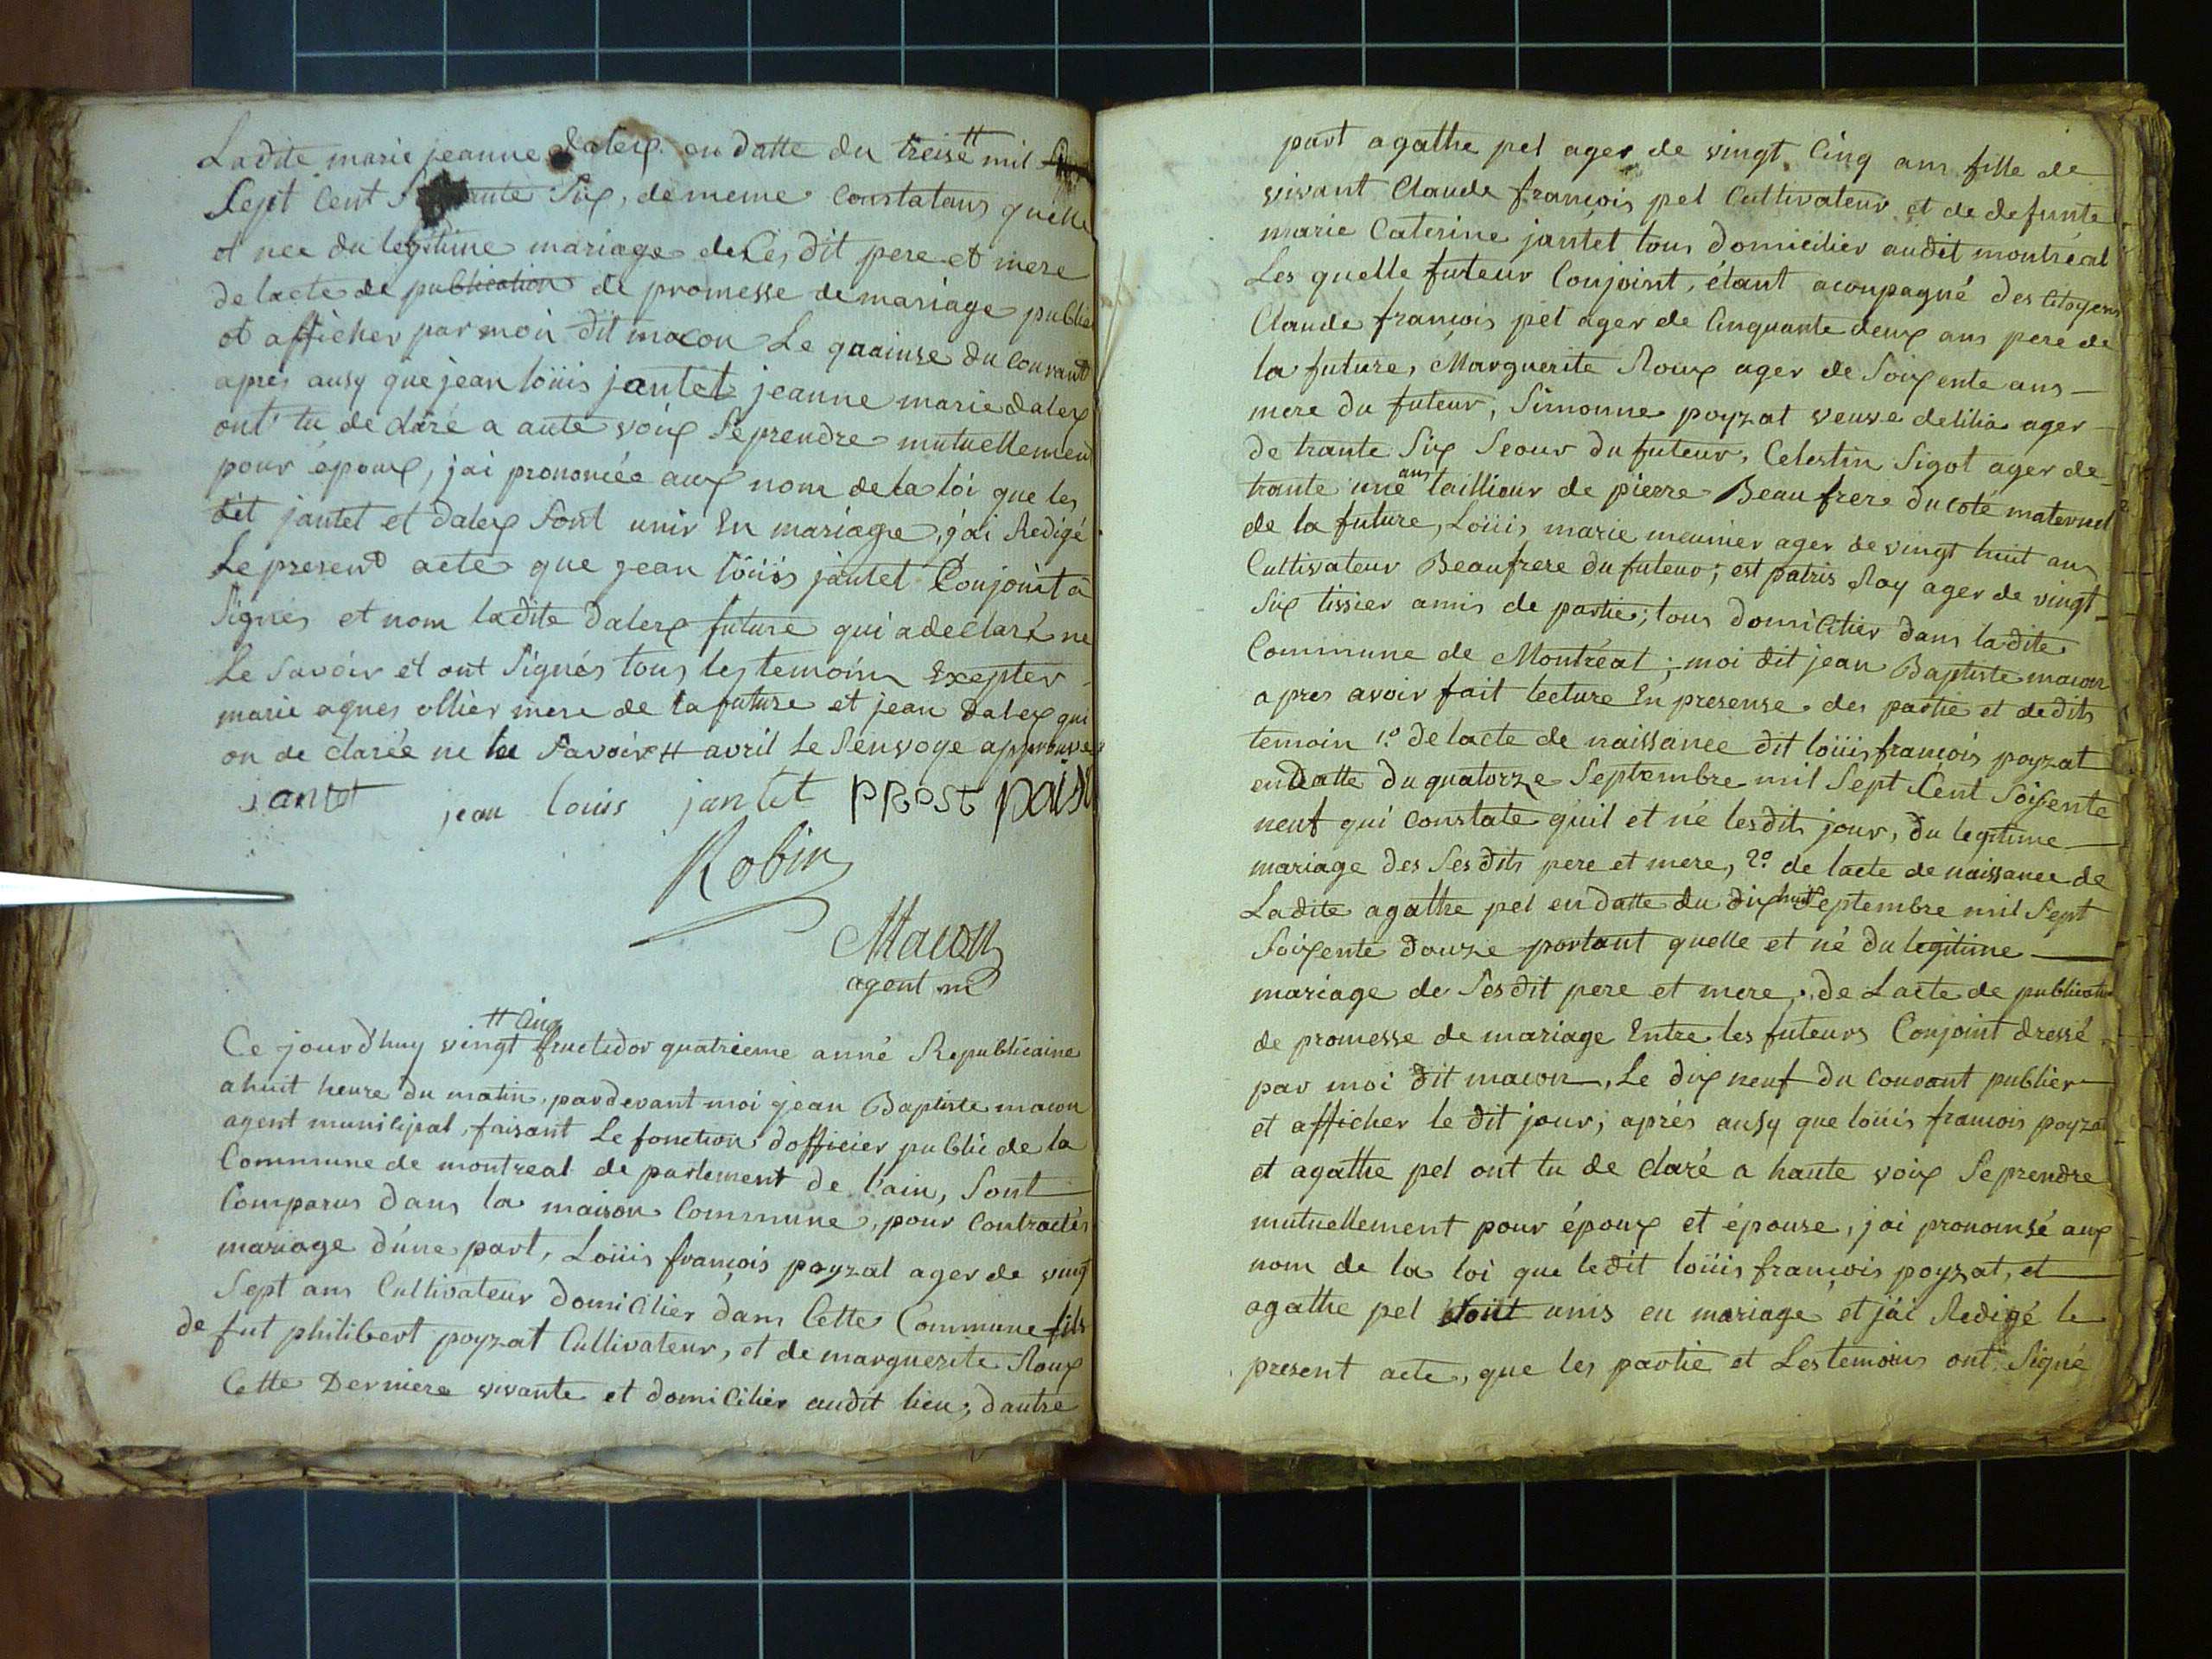 Ladite marie jeanne dalex en datte du treise # mil
Sept Cent Six, de meme Constatans quelle
et nee du legitime mariage de Ces dit pere et mere
de lacte de publication de promesse de mariage publié
et afficher par moi dit macon Le quainse du Courant
apres ausy que jean loüis jantet jeanne marie dalex
ont tu de claré a aute voix Se prendre mutuellement
pour époux, jai prononcée aux nom de la loi que les
dit jantet et dalex Sont unir En mariage, j'ai Redigé
Le present acte que jean loüis jantet Conjoint a
Signés et nom ladite dalex future qui a declaré ne
Le Savoir et ont Signés tous les temoins Excepter
marie agnes ollier mere de la future et jean dalex qui
on de clarée ne le Savoir # avril Le Renvoye approuvé
jantet jean louis jantet PROST
Robin
Macon
agent m
# Cinq
Ce jourd'huy vingt fructidor quatrieme anné Republicaine
a huit heure du matin, pardevant moi jean Baptiste macon
agent municipal, faisant Le fonction dofficier public de la
Commune de montreal de partement de l'ain, Sont
Comparus dans la maison Commune, pour Contractés
mariage d'une part, Loüis françois poyzat ager de vingt
Sept ans Cultivateur domicilier dans Cette Commune fils
de fut philibert poyzat Cultivateur, et de marguerite Roux
Cette Derniere vivante et domicilier audit lieu; dautre
part agathe pel ager de vingt Cinq ans fille de
vivant Claude françois pel Cultivateur et de defunte
marie Caterine jantet tous domicilier audit montréal
Les quelle futeur Conjoint, étant acoupagné des Citoyens
Claude françois pel ager de Cinquante deux ans pere de
la future, Marguerite Roux ager de Soixente ans
mere du futeur, Simonne poyzat veuve delilia ager
de trante Six Seour du futeur, Celestin Sigot ager de
trante une ans taillieur de pierre Beaufrere du coté maternel
de la future, Loüis marie meunier ager de vingt huit ans
Cultivateur Beaufrere du futeur; est patris Roy ager de vingt
Six tissier amis de partie; tous domicilier dans ladite
Commune de Montréal; moi dit jean Baptiste macon
apres avoir fait lecture En presense des partie et dedits
temoin 1.º de lacte de naissance dit loüis françois poyzat
en Datte du quatorze Septembre mil Sept Cent Soixente
neuf qui constate quil et né lesdits jour, du legitime
mariage des Ses dits pere et mere, 2º de lacte de naissance de
Ladite agathe pel en datte du dix huit Septembre mil Sept
Soixente douze portant quelle et né du legitime
mariage de Ses dit pere et mere, de Lacte de publication
de promesse de mariage Entre les futeurs Conjoint dressé
par moi dit macon, Le dix neuf du Courant publier
et afficher le dit jour; aprés ausy que loüis françois poyzat
et agathe pel ont tu de claré a haute voix Se prendre
mutuellement pour époux et épouse, jai prononsé aux
nom de la loi que ledit loüis françois poyzat, et
agathe pel Sont unis en mariage et jai Redigé le
present acte, que les partie et Les temoins ont Signé